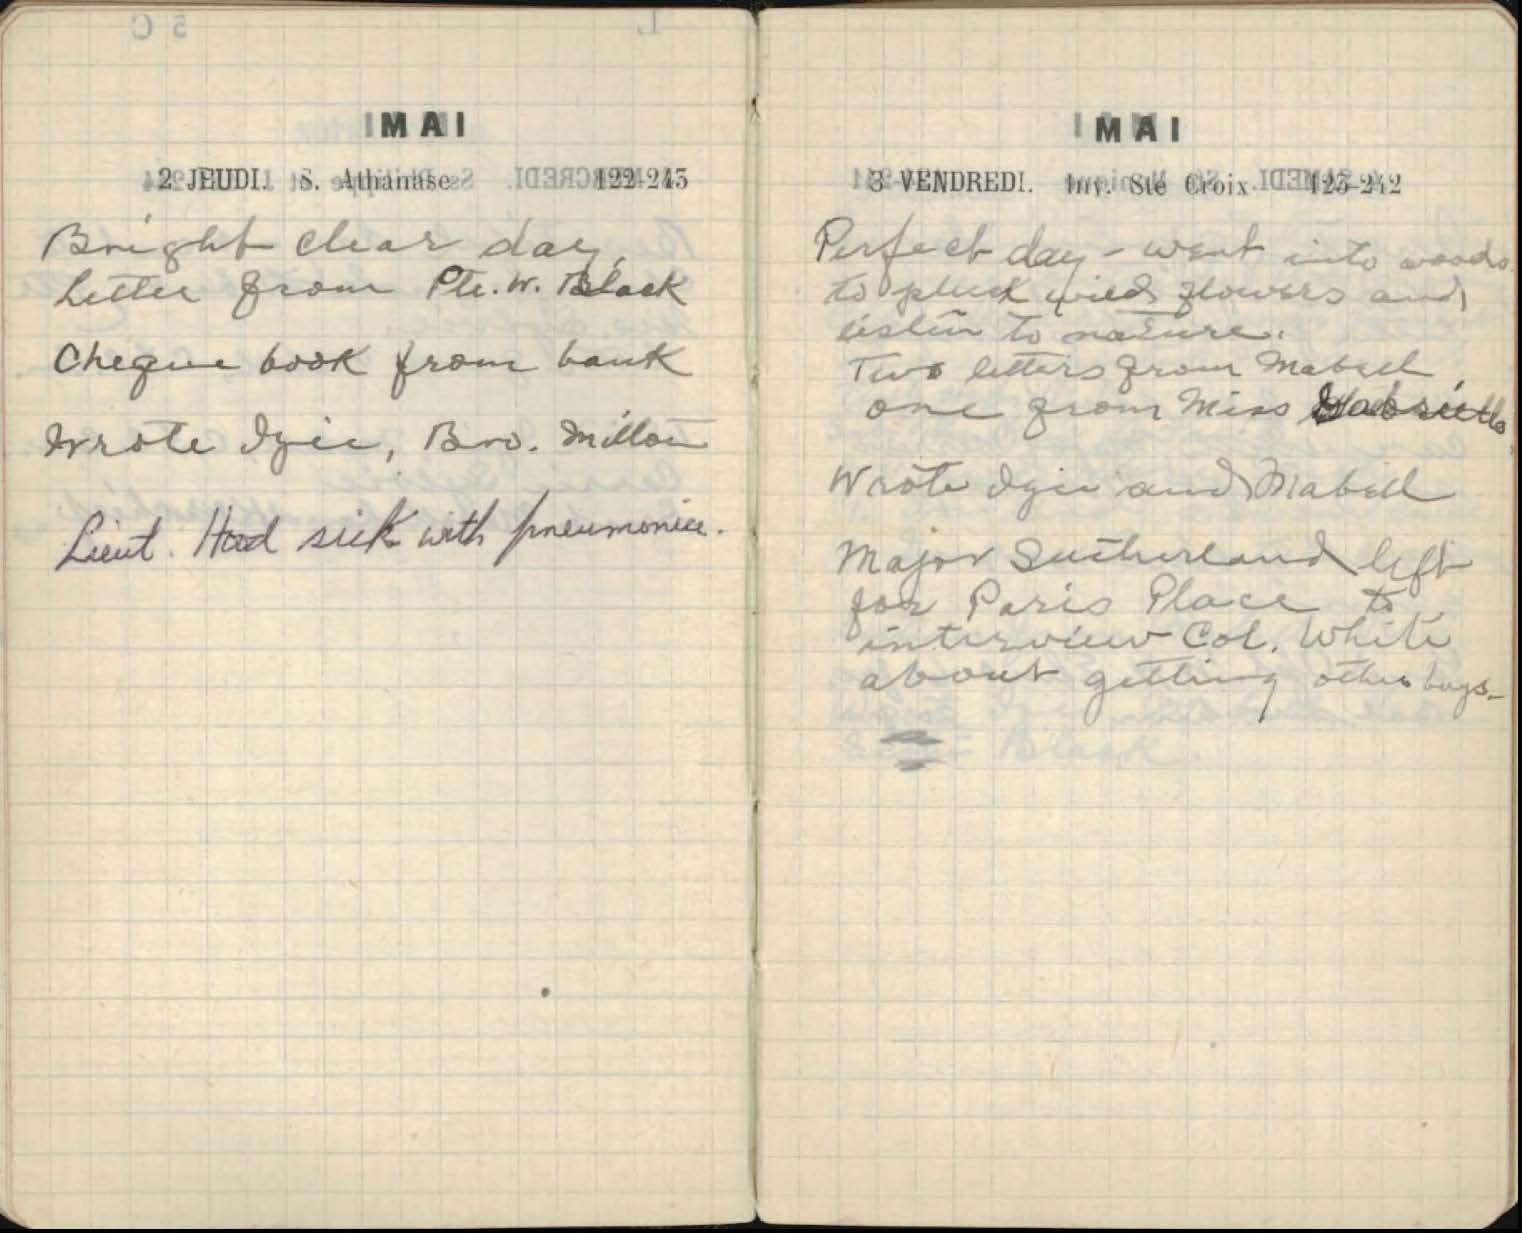 MAI
2 JEUDI. S. Athanase 122-243
Bright clear day.
Letter from Pte. W. Black
Cheque book from bank
Wrote Izie, Bro. Milton
Lieut. Hood sick with pneumonia.
MAI
3 VENDREDI. Inv. Ste Croix 123-242
Perfect day - went into woods
to pluck wild flowers and
listen to nature.
Two letters from Mabell,
one from Miss
Wrote Izie and Mabell
Major Sutherland left
for Paris Place to
interview Col. White
about getting other boys.